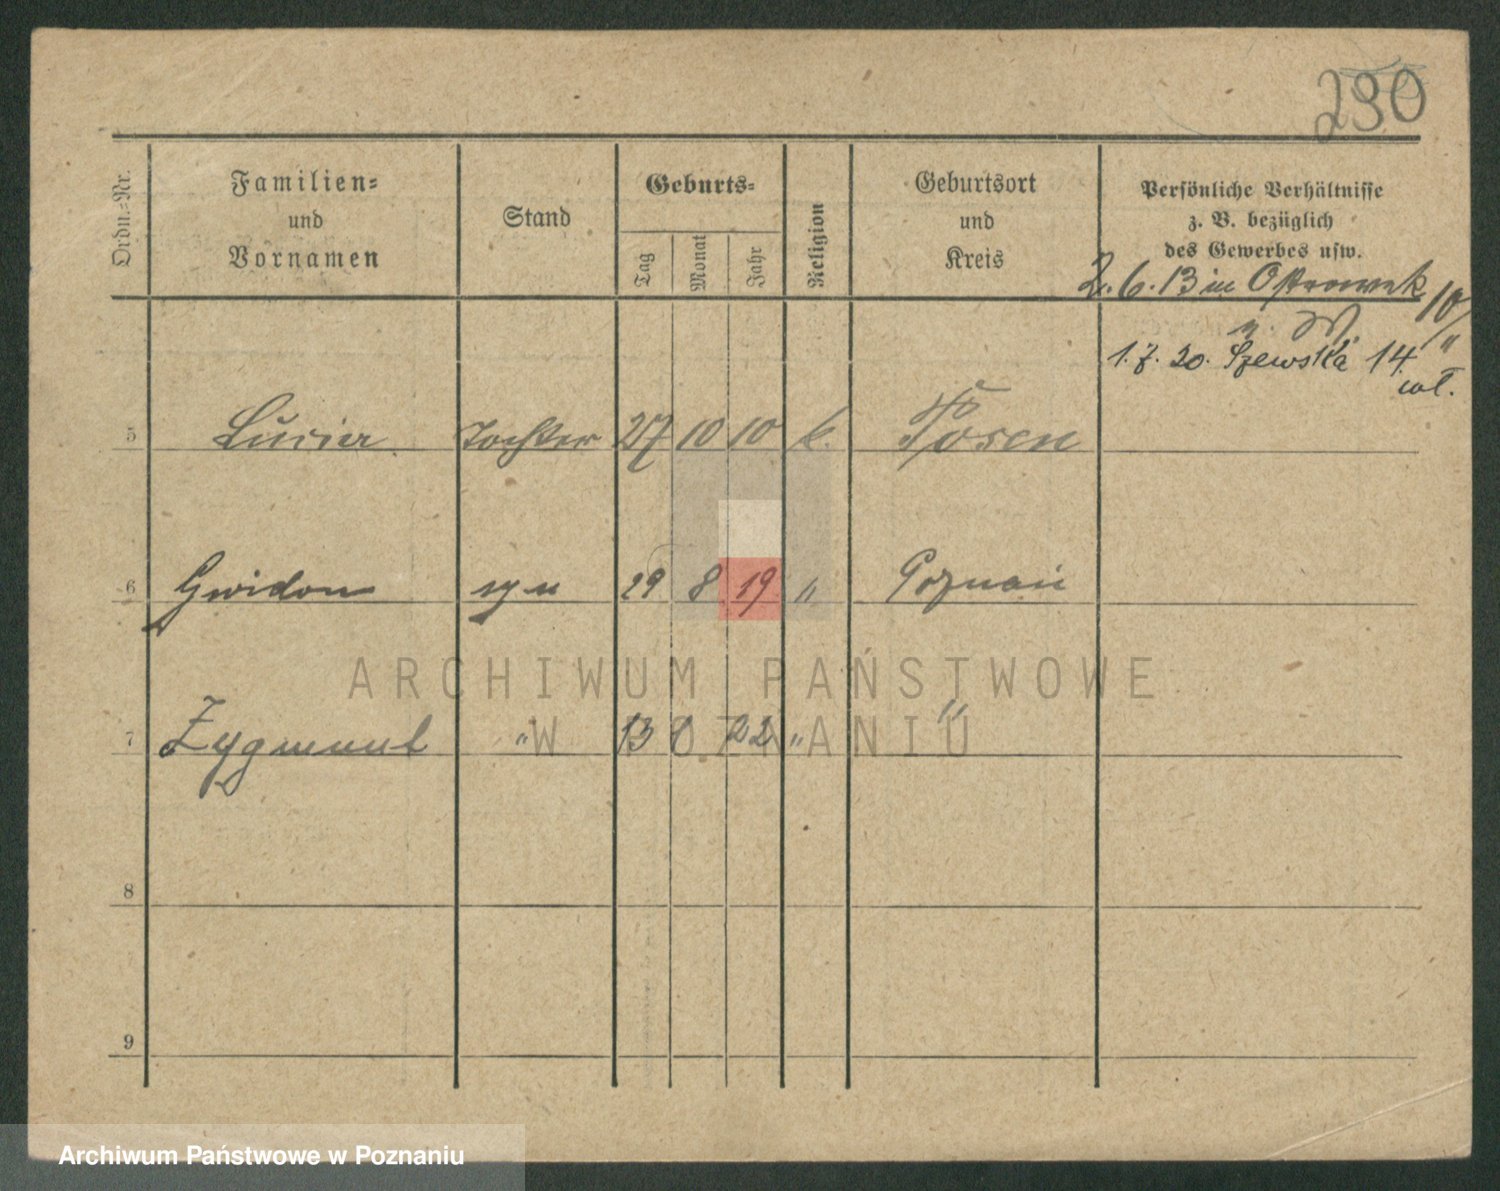 230
Ordn.-Nr.
Familien-
und
Vornamen
Stand
Geburts-
Tag
Monat
Jahr
Religion
Geburtsort
und
Kreis
Persönliche Verhältnisse
z. B. bezüglich
des Gewerbes usw.
2. 6. 13 in Ostrowek 10/11
1. 7. 20. Szewska 14.
wł.
5 Lucia Tochter 27 10 10 k. Posen
6 Gwidon syn 29 8 19 " Poznań
7 Zygmunt " 13 22 " "
8
9
ARCHIWUM PAŃSTWOWE
W POZNANIU
Archiwum Państwowe w Poznaniu